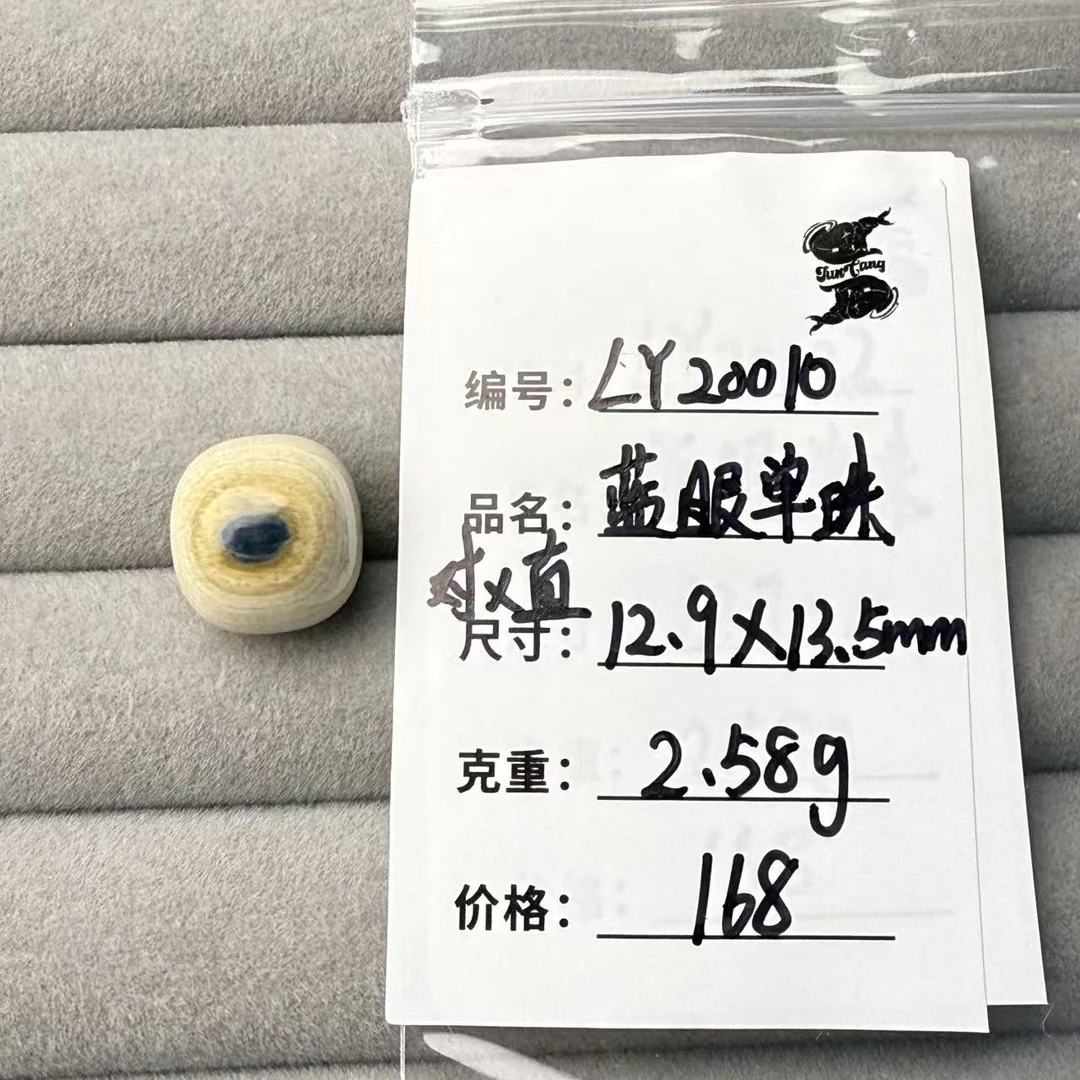 JunCang
编号：LY20010
品名：蓝眼单珠
对×直
尺寸：12.9×13.5mm
克重：2.58g
价格：168